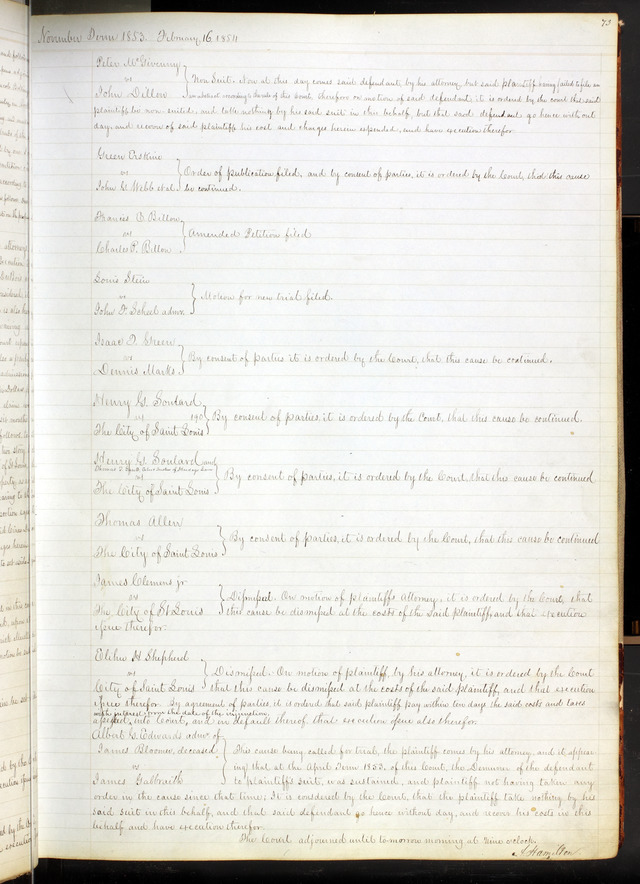 73
November Term 1853. February 16 1854
Peter McGivenny
vs
John Dillon
Non Suit. Now at this day comes said defendant, by his attorney, but said plaintiff having failed to file
according to the rule of this Court, therefore on motion of said defendant it is ordered by the court that said
plaintiff be non suited, and take nothing by his said suit in this behalf, but that said defendant go hence without
day, and recover of said plaintiff his cost and charges herein expended, and have execution therefor.
Green Erskine
vs
John G Webb et al
Order of publication filed, and by consent of parties, it is ordered by the Court, that this cause
be continued.
Frances D Billon
vs
Charles P. Billon
Amended Petition filed
Louis Stein
vs
John F. Scheel admr.
Motion for new trial filed.
Isaac T. Green
vs
Dennis Marks.
By consent of parties it is ordered by the Court, that this cause be continued.
Henry G. Soulard
vs 190
The City of Saint Louis
By consent of parties, it is ordered by the Court, that this cause be continued
Henry G. Soulard and
vs
The City of Saint Louis.
By consent of parties, it is ordered by the Court, that this cause be continued
Thomas Allen
vs
The City of Saint Louis
By consent of parties, it is ordered by the Court, that this cause be continued
James Clemens jr
vs
The City of St Louis
Dismissed. On motion of plaintiff's Attorney, it is ordered by the Court, that
this cause be dismissed at the costs of the said plaintiff, and that execution
issue therefor.
Elihu H Shepherd
vs
City of Saint Louis
Dismissed. On motion of plaintiff, by his attorney, it is ordered by the Court
that this cause be dismissed at the costs of the said plaintiff, and that execution
issue therefor. By agreement of parties it is ordered that said plaintiff pay within ten days the said costs and taxes
with interest from the date of the injunction
assessed, into Court, and in default thereof, that execution issue also therefor.
Albert G. Edwards admr. of
James Bloomer, deceased
vs
James Galbraith
This cause being called for trial, the plaintiff comes by his attorney, and it appear-
ing that at the April Term 1853. of this Court, the Demurrer of the defendant
to plaintiff's suit, was sustained, and plaintiff not having taken any
order in the cause since that time; It is considered by the Court, that the plaintiff take nothing by his
said suit in this behalf, and that said defendant go hence without day, and recover his costs in this
behalf and have execution therefor.
The Court adjourned until to-morrow morning at nine o'clock.
A Hamilton